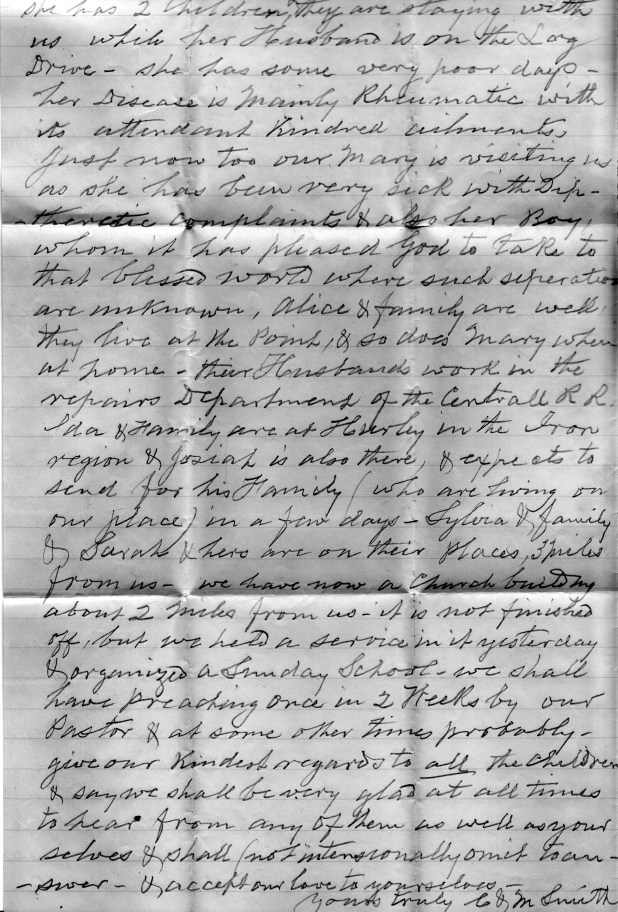 she has 2 Children, they are staying with
us while her Husband is on the Log
Drive - she has some very poor days -
her Disease is Mainly Rheumatic with
its attendant Kindred ailments,
Just now too our Mary is visiting us
as she has been very sick with Dip-
- theretic complaints & also her Boy,
whom it has pleased God to take to
that blessed world where such seperation
are unknown, Alice & family are well,
they live at the Point, & so does Mary when
at home - their Husbands work in the
repairs Department of the Centrall R R.
Ida & Family are at Hurley in the Iron
region & Josiah is also there, & expects to
send for his Family (who are living on
our place) in a few days - Sylvia & family
& Sarah & hers are on their Places, 3 miles
from us - we have now a Church building
about 2 Miles from us - it is not finished
off, but we held a service in it yesterday
& organized a Sunday School - we shall
have preaching once in 2 Weeks by our
Pastor & at some other times probably -
give our Kindest regards to all the Children
& say we shall be very glad at all times
to hear from any of them as well as your
selves & shall (not intensionally omit to an-
- swer - & accept our love to yourselves -
Yours truly C & M Smith